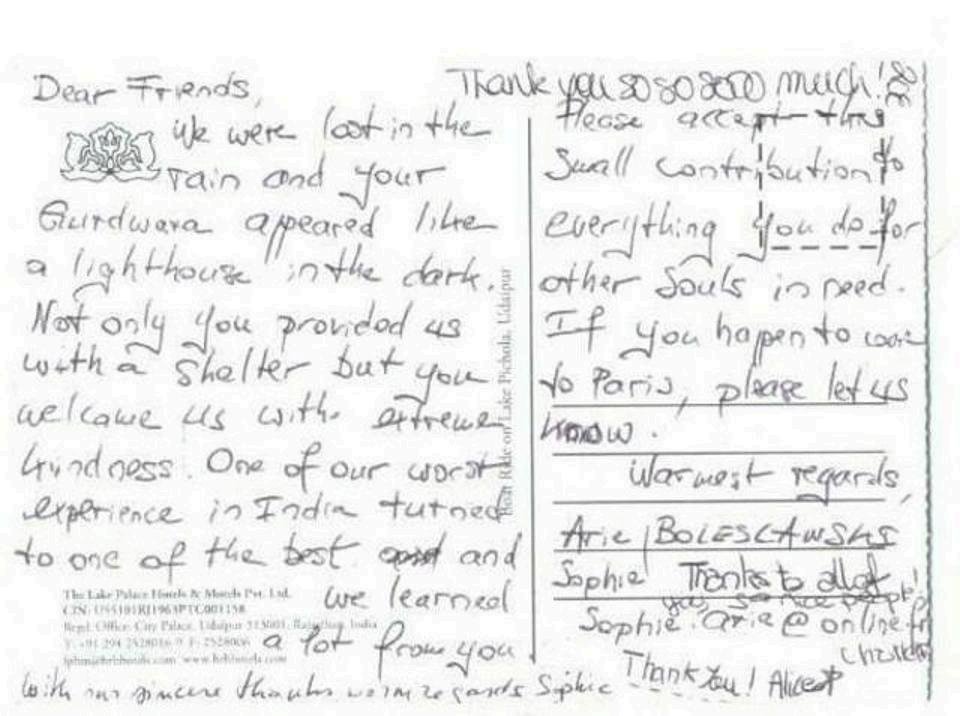 Dear Friends,
We were lost in the
rain and your
Gurdwara appeared like
a lighthouse in the dark.
Not only you provided us
with a shelter but you
welcome us with extreme
kindness. One of our worst
experience in India turned
to one of the best and
we learned
a lot from you
With our sincere thanks warm regards Sophie
The Lake Palace Hotels & Motels Pvt. Ltd.
Regd. Office: City Palace, Udaipur 313001, Rajasthan, India
www.hrhhotels.com
Boat Ride on Lake Pichola, Udaipur
Thank you so so sooo much!
Please accept this
small contribution to
everything you do for
other souls in need.
If you happen to come
to Paris, please let us
know.
Warmest regards,
Arie BOLESLAWSKI
Sophie Thanks to all of
you, so nice people!
Sophie.arie@online.fr
Thank You! Alice